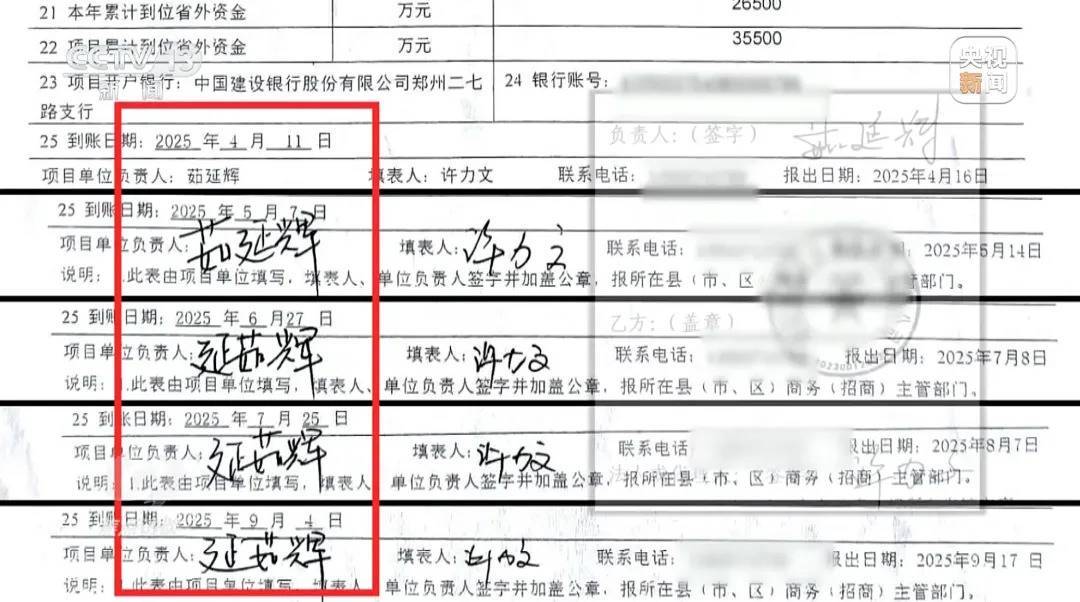 21 本年累计到位省外资金 万元 26500
22 项目累计到位省外资金 万元 35500
CCTV 13
新闻
央视
新闻
23 项目开户银行：中国建设银行股份有限公司郑州二七路支行 24 银行账号：
负责人：（签字） 茹延辉
25 到账日期：2025 年 4 月 11 日
项目单位负责人：茹延辉 填表人：许力文 联系电话： 报出日期：2025年4月16日
25 到账日期：2025 年 5 月 7 日
项目单位负责人：茹延辉 填表人：许力文 联系电话： 2025年5月14日
说明：1.此表由项目单位填写，填表人、单位负责人签字并加盖公章，报所在县（市、区 主管部门。
25 到账日期：2025 年 6 月 27 日
乙方：（盖章）
项目单位负责人：延茹辉 填表人：许力文 联系电话： 报出日期：2025年7月8日
说明：1.此表由项目单位填写，填表人、单位负责人签字并加盖公章，报所在县（市、区）商务（招商）主管部门。
25 到账日期：2025 年 7 月 25 日
项目单位负责人：延茹辉 填表人：许力文 联系电话 报出日期：2025年8月7日
说明：1.此表由项目单位填写，填表人、单位负责人签字并加盖公章，报所在县（市、区）商务（招商）主管部门。
25 到账日期：2025 年 9 月 4 日
项目单位负责人：延茹辉 填表人：许力文 联系电话： 报出日期：2025年9月17日
说明：1.此表由项目单位填写，填表人、单位负责人签字并加盖公章，报所在县（市、区）商务（招商）主管部门。